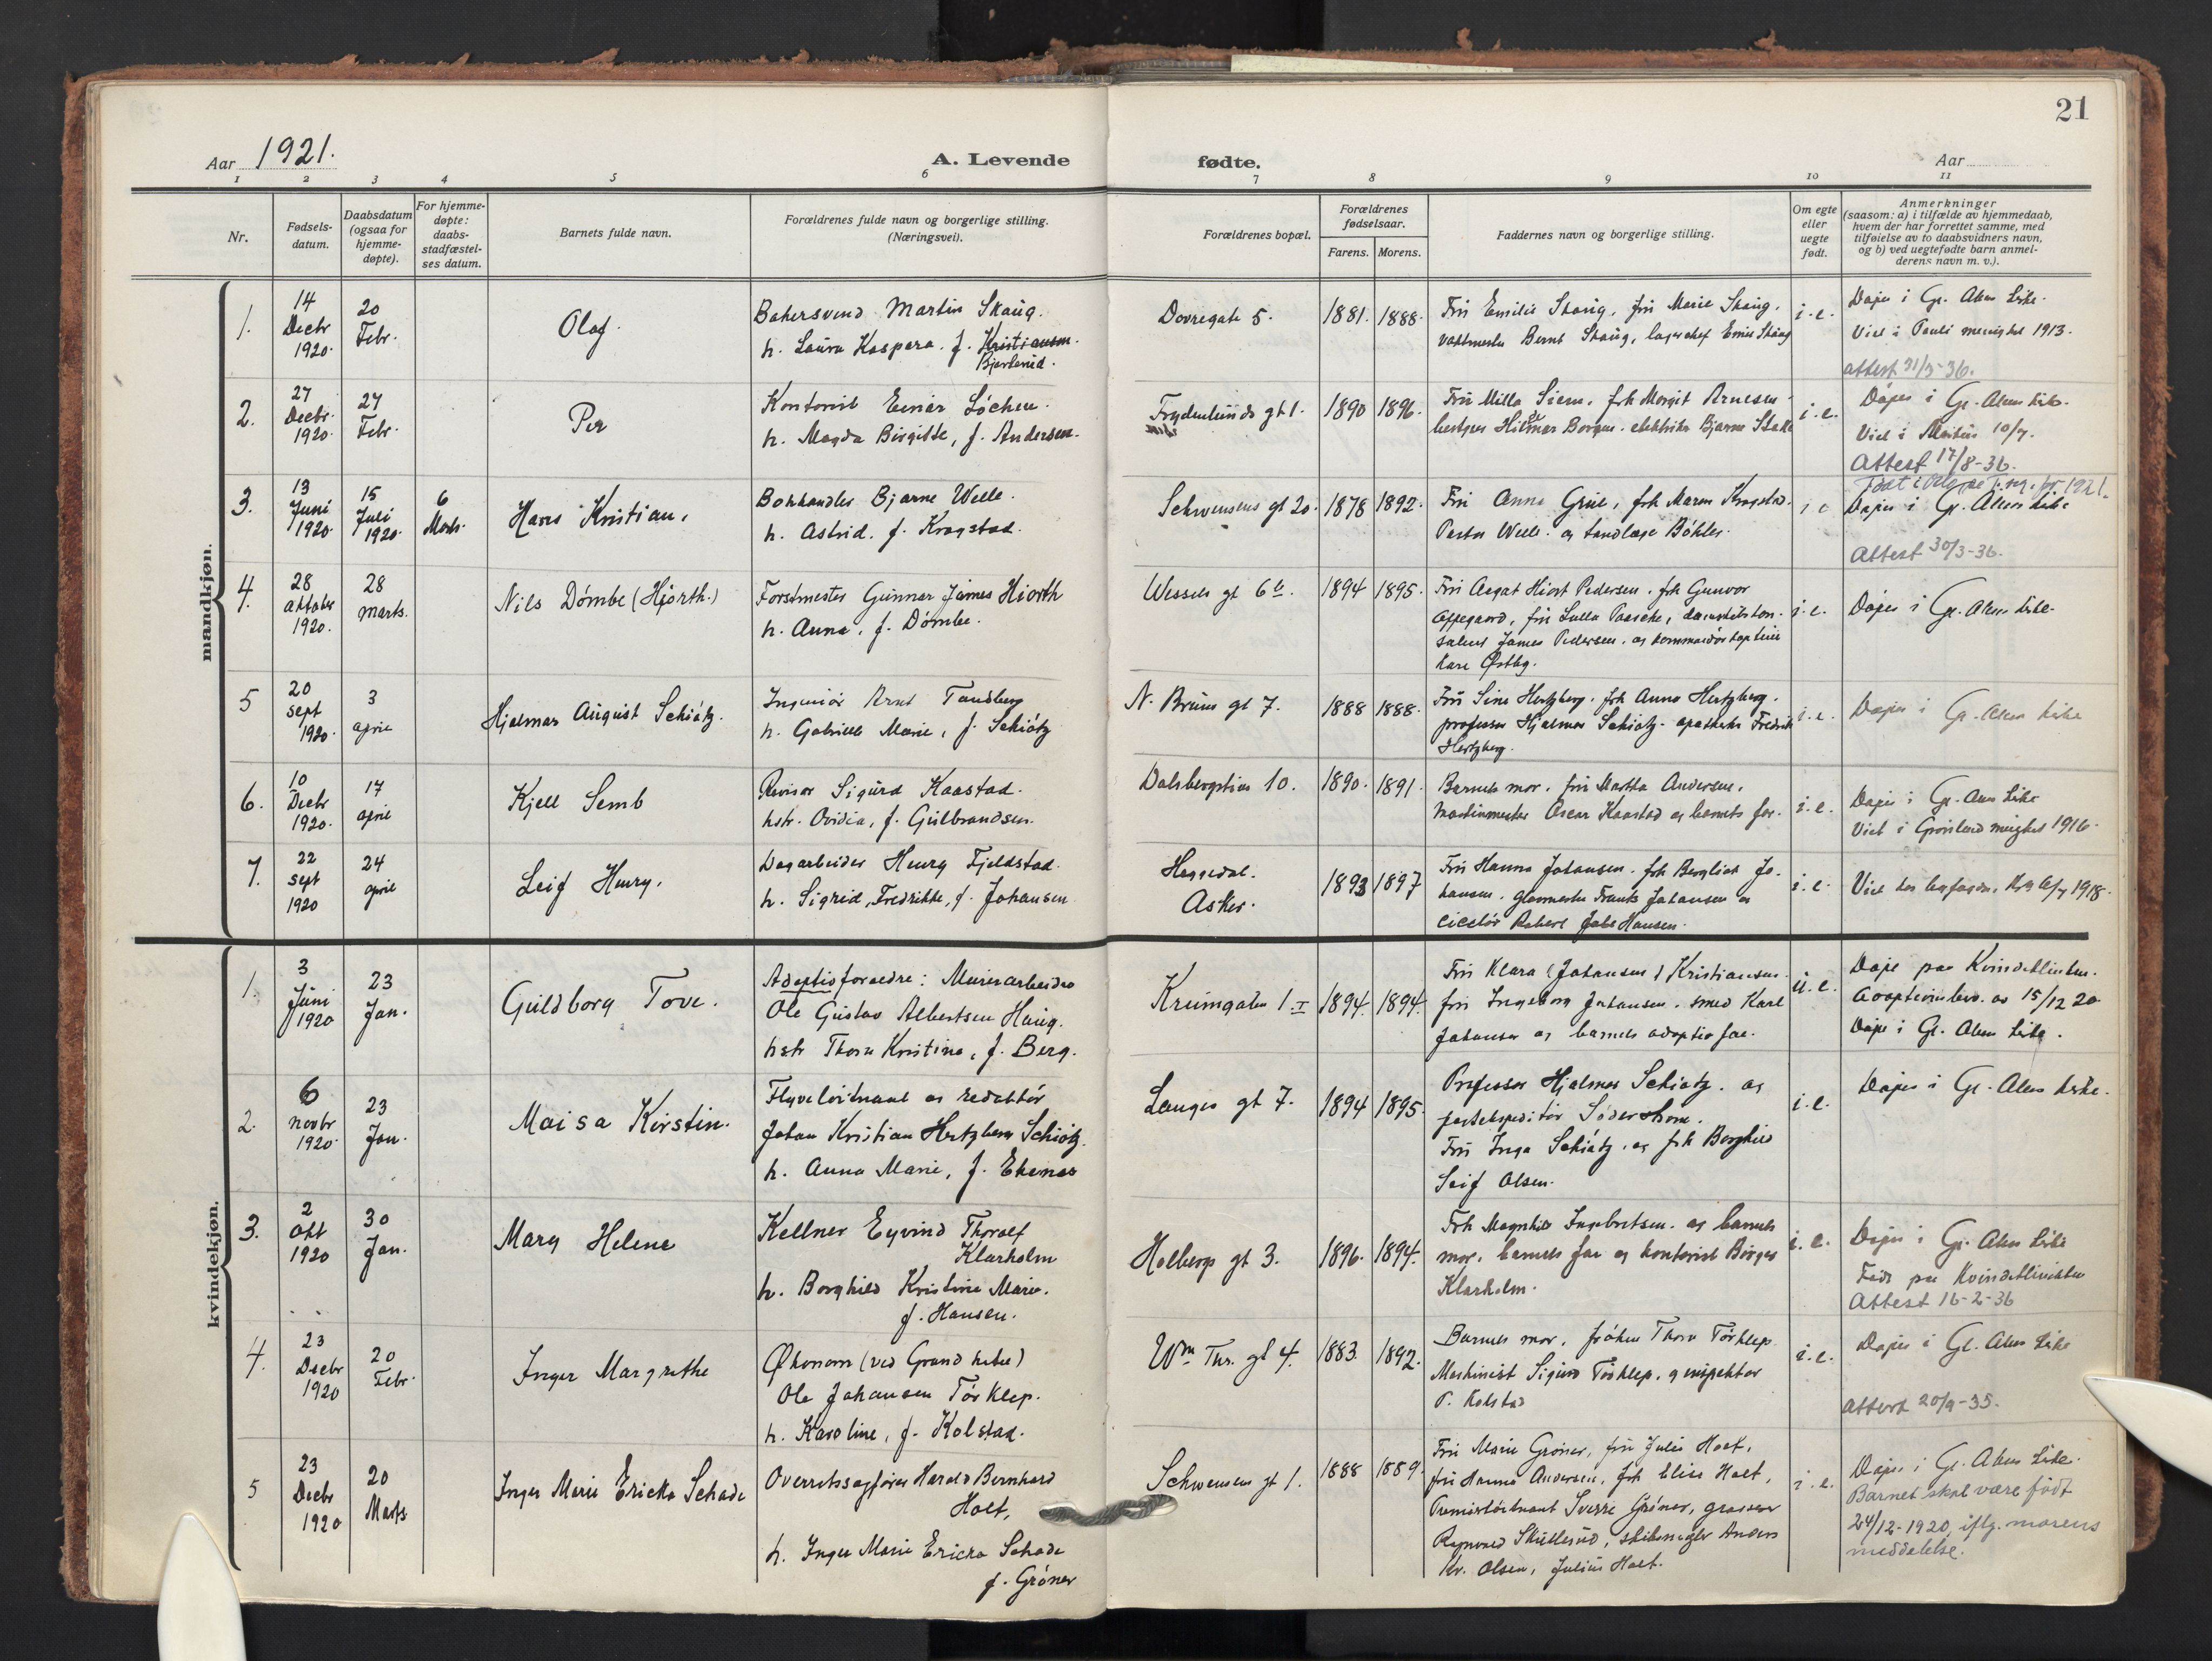 21
Aar 1921.
A. Levende
fødte.
Aar
1 2 3 4 5 6 7 8 9 10 11
Nr.
Fødsels-
datum.
Daabsdatum
(ogsaa for
hjemme-
døpte).
For hjemme-
døpte:
daabs-
stadfæstel-
ses datum.
Barnets fulde navn.
Forældrenes fulde navn og borgerlige stilling.
(Næringsvei).
Forældrenes bopæl.
Forældrenes
fødselsaar.
Farens. Morens.
Faddernes navn og borgerlige stilling.
Om egte
eller
uegte
født.
Anmerkninger
(saasom: a) i tilfælde av hjemmedaab,
hvem der har forrettet samme, med
tilføielse av to daabsvidners navn,
og b) ved uegtefødte barn anmel-
derens navn m. v.).
mandkjøn.
1.
14
Decbr
1920.
20
Febr.
Olaf.
Bakersvend Martin Skaug.
h. Laura Kaspara. f. Kristiansen.
Bjerkerud.
Dovregate 5.
1881. 1888.
Fru Emilie Skaug, fru Marie Skaug,
vaktmester Bernt Skaug, lagerchef Emil Skaug
i. e.
Døpt i Gl. Akers kirke.
Viet i Pauli menighet 1913.
attest 31/3-36.
2.
27
Decbr.
1920.
27
Febr.
Per
Kontorist Einar Löchen.
h. Magda Birgitte, f. Andersen.
Frydenlunds gt 1.
1890 1896.
Fru Milla Siem, frk Margit Arnesen
Borgen. elektriker Bjarne
i. e.
Døpt i Gl. Akers kirke.
Viet i 10/7.
Attest 17/8-36.
3.
13
Juni
1920.
15
Juli
1920.
6
Marts.
Hans Kristian.
Bokhandler Bjarne Welle.
h. Astrid. f. Kragstad.
Schwensens gt 20.
1878 1892.
Fru Anna Grue, frk Maren Kragstad.
Pastor Welle. og tandlæge Böhler.
i e
1921.
Døpt i Gl. Akers kirke
Attest 30/3-36.
4.
28
oktober
1920.
28
marts.
Nils Dömbe (Hjorth.)
Forstmester Gunnar James Hiorth
h. Anna. f. Dömbe.
Wessels gt 6 b.
1894 1895.
Fru Aagat Hiort Pedersen. frk Gunvor
Oppegaard, fru Lulla Paaske,
James Pedersen. og kommandörkaptein
Kare Østby.
i. e.
Døpt i Gl. Akers kirke.
5
20
sept
1920.
3
april
Hjalmar August Schiötz.
Ingeniör Arnt Tandberg
h. Gabrielle Marie, f. Schiötz
N. Bruns gt 7.
1888 1888.
Fru Sina Hertzberg. frk Anna Hertzberg.
professor Hjalmar Schiötz. apotheker Fredrik
Hertzberg.
i. e.
Døpt i Gl. Akers kirke
6.
10
Decbr
1920.
17
april
Kjell Semb
Revisor Sigurd Kaastad.
hstr. Ovidia, f. Gulbrandsen.
Dalsbergstien 10.
1890. 1891.
Barnets mor. fru Martha Andersen,
Maskinmester Oscar Kaastad og barnets far.
i. e.
Døpt i Gl. Akers kirke
Viet i Grönland menighet 1916.
7.
22
sept
1920
24
april
Leif Henry.
Dagarbeider Henry Fjeldstad.
h. Sigrid, Fredrikke, f. Johansen
Heggedal.
Asker.
1893 1897
Fru Hanna Johansen. frk Bergliot Jo-
hansen. glasmester Frants Johansen og
ciselör Robert Johs Hansen.
i. e.
Viet hos byfogden, Kra 1918.
kvindekjøn.
1.
3
Juni
1920
23
Jan.
Guldborg Tove.
Adoptivforældre: Murerarbeider
Ole Gustav Albertsen Haug.
hstr Thora Kristine, f. Berg.
Krumgaten 1. I
1894. 1894.
Fru Klara (Johansen) Kristiansen.
fru Ingeborg Johansen. smed Karl
Johansen og barnets adoptivfar.
u. e.
Døpt paa Kvindeklinikken.
Adoptionsbev. av 15/12 20
Døpt i Gl. Akers kirke.
2.
6
novbr
1920.
23
Jan.
Maisa Kirstin.
Flyvelöitnant og redaktör
Johan Kristian Hertzberg Schiötz.
h. Anna Marie, f. Ekenes
Langes gt 7.
1894 1895.
Professor Hjalmar Schiötz. og
postekspeditör Söderstrom.
Fru Inga Schiötz. og frk Borghild
Leif Olsen.
i. e.
Døpt i Gl. Akers kirke.
3.
2
Okt
1920
30
Jan.
Mary Helene
Kellner Eyvind Thoralf
Klarholm
h. Borghild Kristine Marie.
f. Hansen.
Holbergs gt 3.
1896. 1894.
Frk Magnhild Ingebretsen. og barnets
mor. barnets far og kontorist Birger
Klarholm.
i. e.
Døpt i Gl. Akers kirke
Født paa Kvindeklinikken
Attest 16-2-36
4.
23
Decbr
1920
20
Febr.
Inger Margrethe
Økonom (ved Grand hotel)
Ole Johansen Törklep.
h. Karoline, f. Kolstad.
Wm Thr. gt 4.
1883. 1892.
Barnets mor, fröken Thora Törklep
Maskinist Sigurd Törklep. og inspektör
P. Kolstad
i. e.
Døpt i Gl. Akers kirke
Attest 20/9-35.
5
23
Decbr
1920
20
Marts
Inger Marie Ericka Schade
Overretssagförer Harald Bernhard
Holt,
h. Inger Marie Ericka Schade
f. Gröner
Schwensens gt 1.
1888 1889.
Fru Marie Gröner, fru Julie Holt,
fru Hanna Andersen, frk Elise Holt,
Premierlöitnant Sverre Gröner, grosserer
Ragnvald Skullerud, skibsmegler Anders
Kr. Olsen, Julius Holt.
i. e.
Døpt i Gl. Akers kirke.
Barnet skal være født
24/12-1920, iflg. morens
meddelelse.